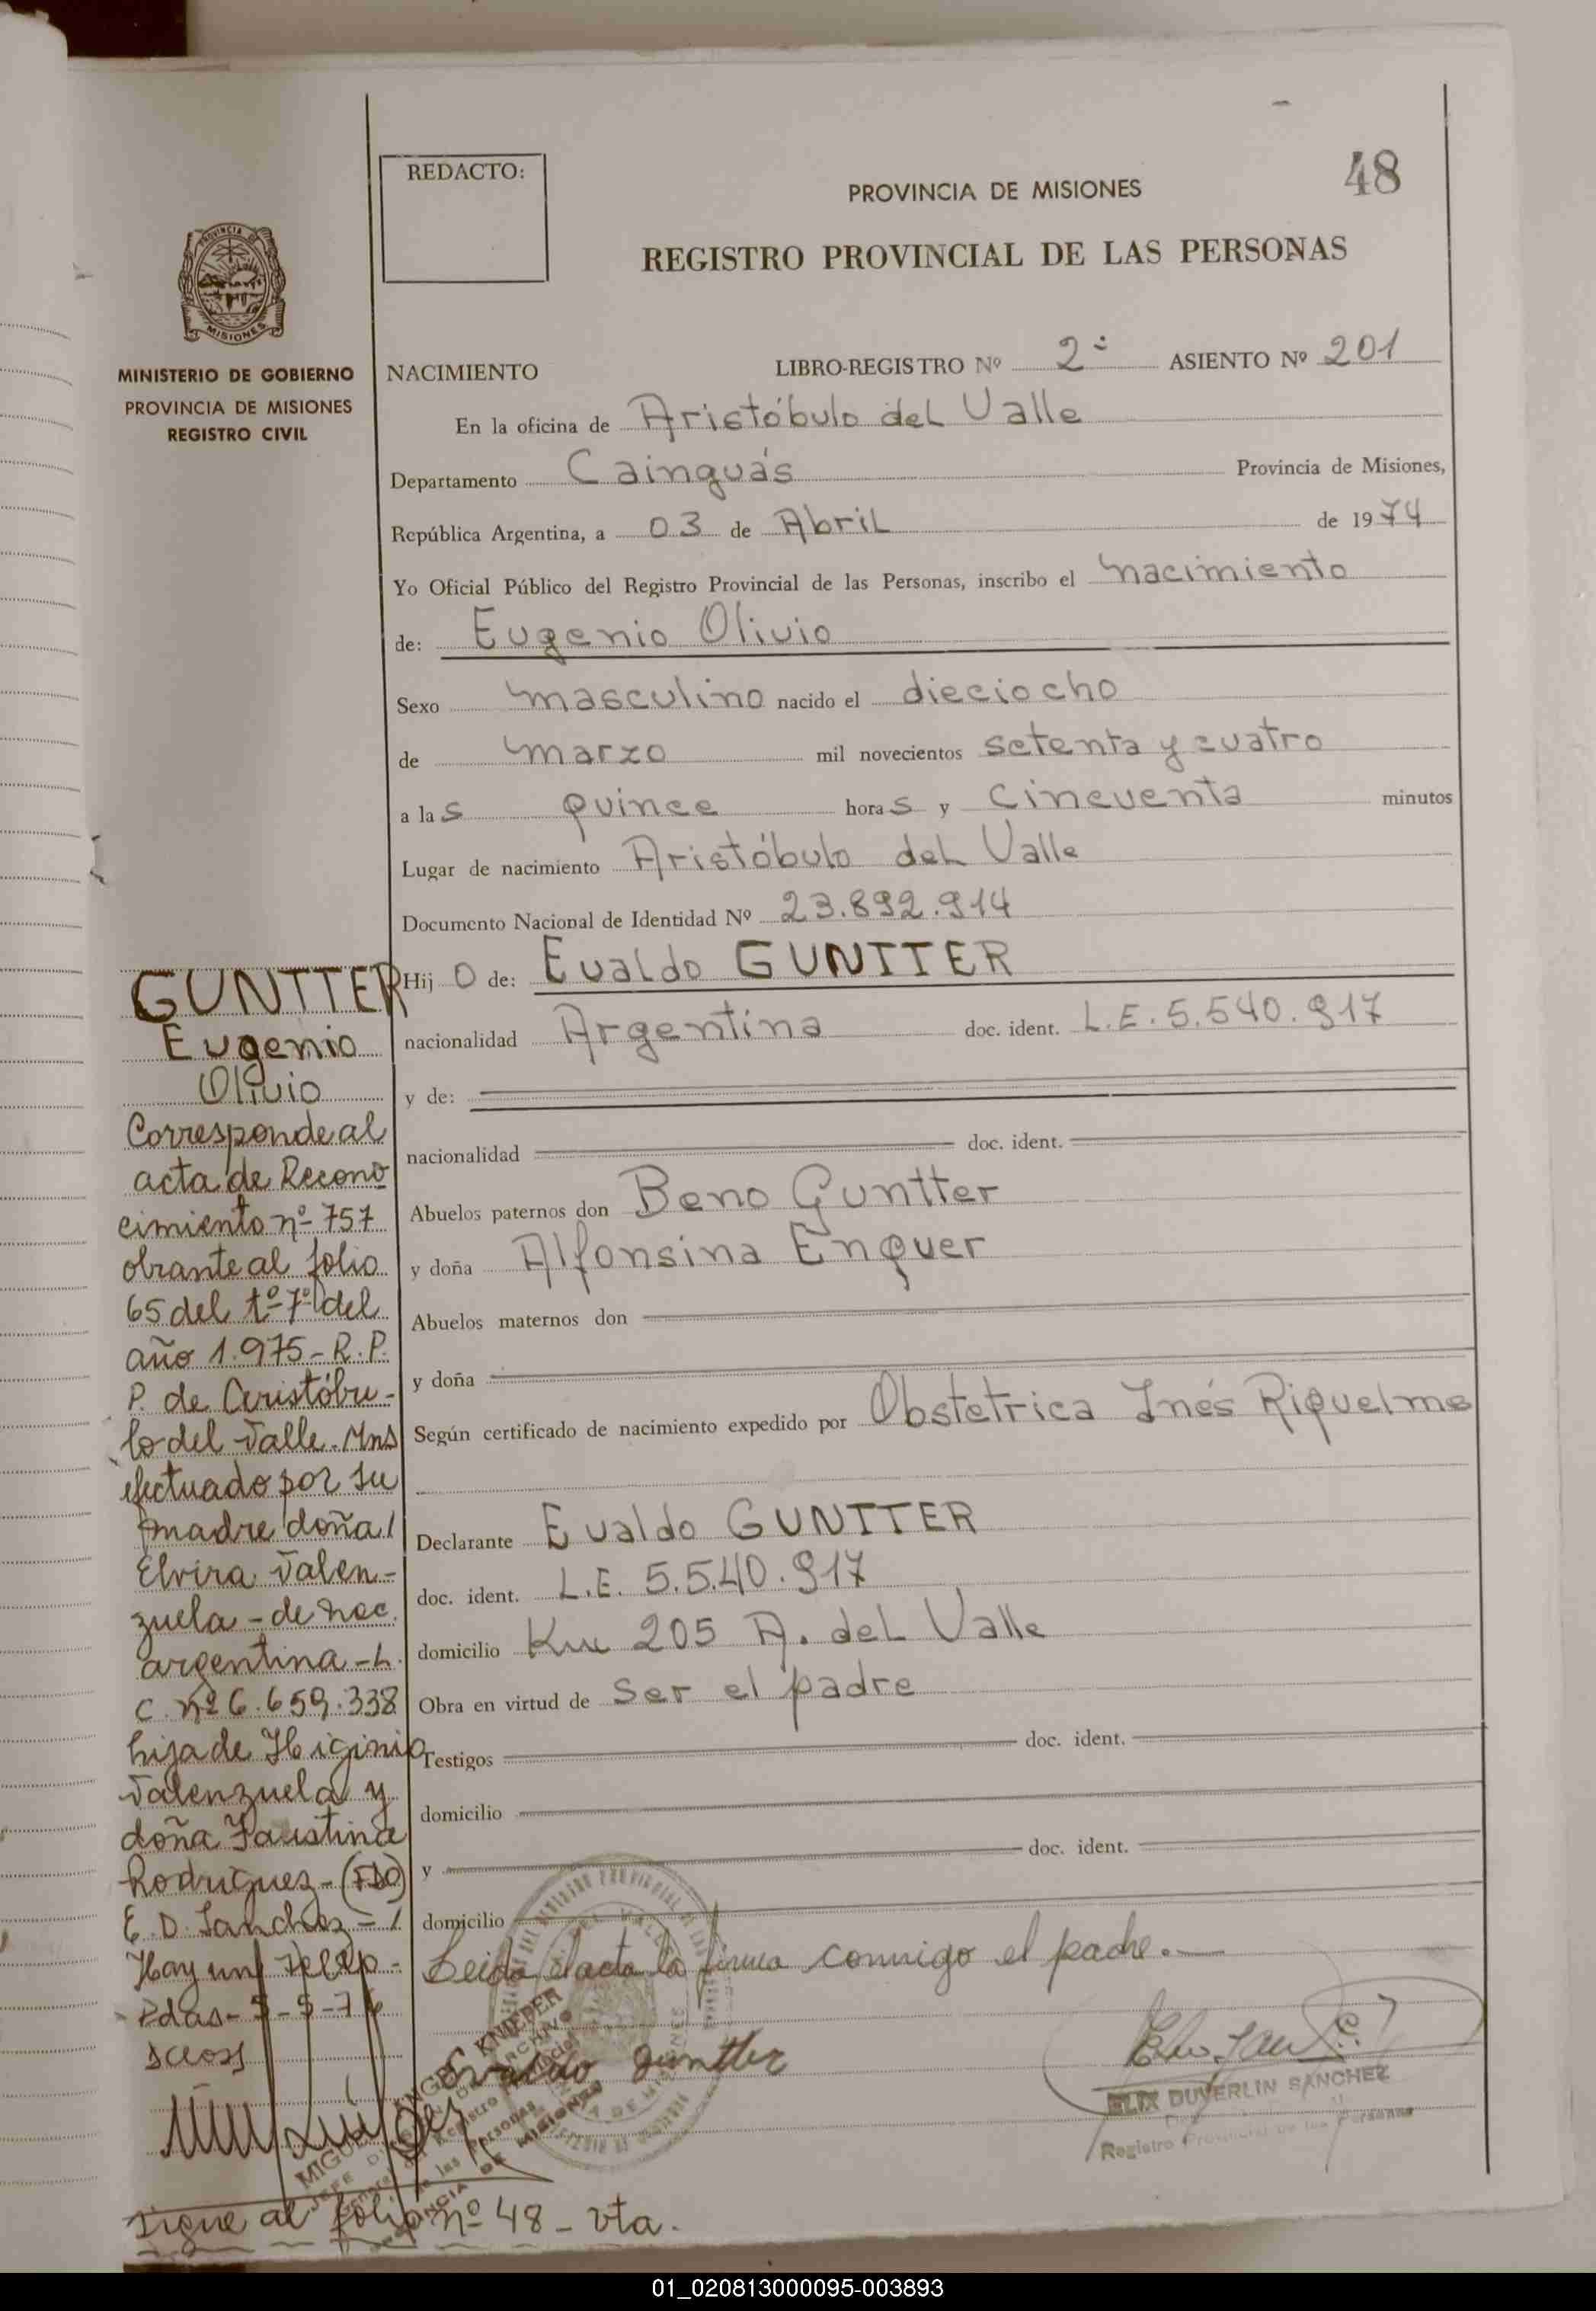 48
REDACTO:
PROVINCIA DE MISIONES
REGISTRO PROVINCIAL DE LAS PERSONAS
PROVINCIA DE
MISIONES
MINISTERIO DE GOBIERNO
PROVINCIA DE MISIONES
REGISTRO CIVIL
NACIMIENTO LIBRO-REGISTRO Nº 2º ASIENTO Nº 201
En la oficina de Aristóbulo del Valle
Departamento Cainguás Provincia de Misiones,
República Argentina, a 03 de Abril de 1974
Yo Oficial Público del Registro Provincial de las Personas, inscribo el nacimiento
de: Eugenio Olivio
Sexo masculino nacido el dieciocho
de marzo mil novecientos setenta y cuatro
a las quince horas y cincuenta minutos
Lugar de nacimiento Aristóbulo del Valle
Documento Nacional de Identidad Nº 23.892.914
Hijo de: Evaldo GUNTTER
nacionalidad Argentina doc. ident. L.E. 5.540.917
y de:
nacionalidad doc. ident.
Abuelos paternos don Beno Guntter
y doña Alfonsina Enquer
Abuelos maternos don
y doña
Según certificado de nacimiento expedido por Obstetrica Inés Riquelme
Declarante Evaldo GUNTTER
doc. ident. L.E. 5.540.917
domicilio Km 205 A. del Valle
Obra en virtud de Ser el padre
Testigos doc. ident.
domicilio
y doc. ident.
domicilio
Leida el acta la firma conmigo el padre.
Evaldo Guntter
ELIX DUVERLIN SANCHEZ
Registro Provincial de las Personas
GUNTTER
Eugenio
Olivio
Corresponde al
acta de Recono
cimiento nº 757
obrante al folio
65 del tº 7º del
año 1.975 - R. P.
P. de Aristóbu-
lo del Valle. Mns
efectuado por su
madre doña
Elvira Valen-
zuela - de nac.
argentina - L.
C. nº 6.659.338
hija de Higinio
Valenzuela y
doña Faustina
Rodriguez - (FDO)
E. D. Sanchez =
Hay un sello -
Pdas - 5-5-76
MIGUEL ANGEL KNIEPER
Registro
de las Personas
PROVINCIA DE MISIONES
sigue al folio nº 48 - vta.
01_020813000095-003893